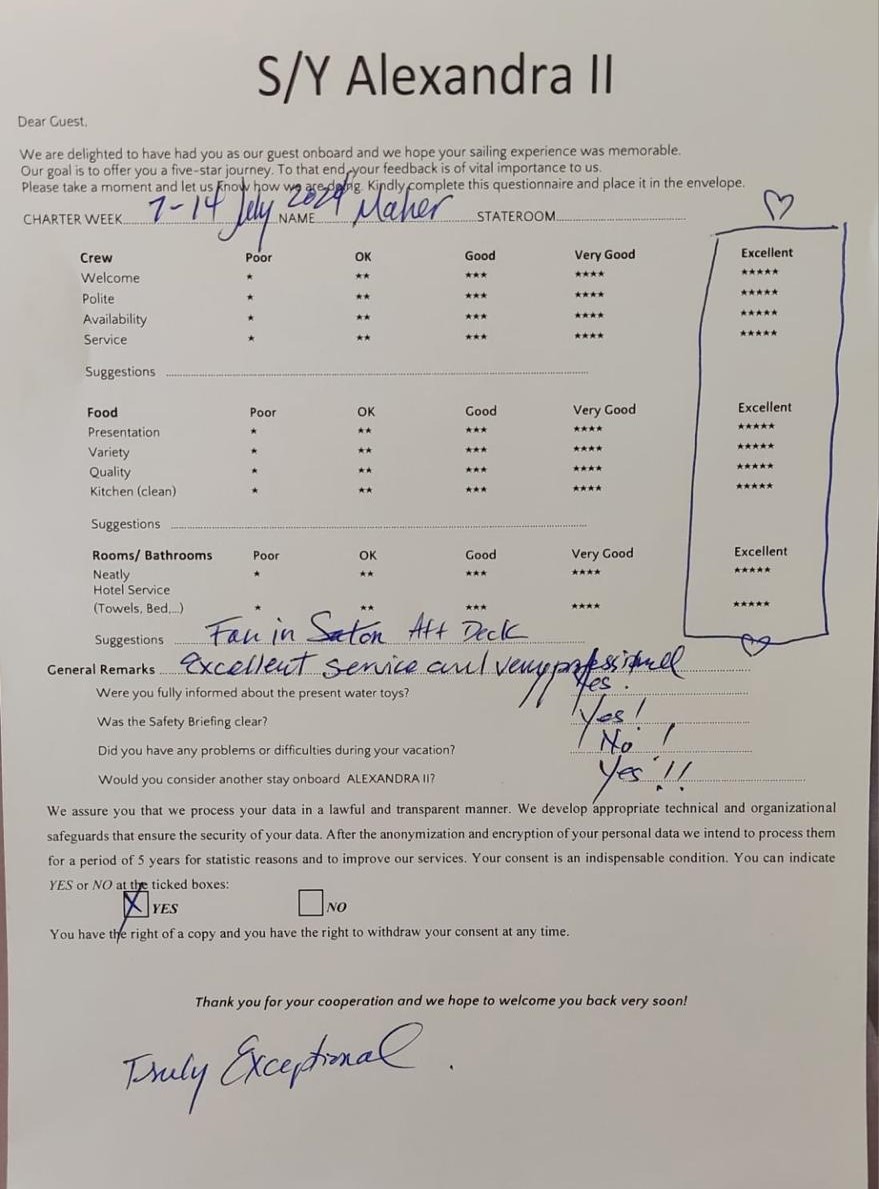 S/Y Alexandra II
Dear Guest,
We are delighted to have had you as our guest onboard and we hope your sailing experience was memorable.
Our goal is to offer you a five-star journey. To that end, your feedback is of vital importance to us.
Please take a moment and let us know how we are doing. Kindly complete this questionnaire and place it in the envelope.
CHARTER WEEK 7-14 July 2024 NAME Maher STATEROOM
Crew Poor OK Good Very Good Excellent
Welcome * ** *** **** *****
Polite * ** *** **** *****
Availability * ** *** **** *****
Service * ** *** **** *****
Suggestions
Food Poor OK Good Very Good Excellent
Presentation * ** *** **** *****
Variety * ** *** **** *****
Quality * ** *** **** *****
Kitchen (clean) * ** *** **** *****
Suggestions
Rooms/ Bathrooms Poor OK Good Very Good Excellent
Neatly * ** *** **** *****
Hotel Service
(Towels, Bed,...) * ** *** **** *****
Suggestions Fan in Aft Deck
General Remarks Excellent service and very professional
Were you fully informed about the present water toys? Yes.
Was the Safety Briefing clear? Yes!
Did you have any problems or difficulties during your vacation? No!
Would you consider another stay onboard ALEXANDRA II? Yes!!
We assure you that we process your data in a lawful and transparent manner. We develop appropriate technical and organizational
safeguards that ensure the security of your data. After the anonymization and encryption of your personal data we intend to process them
for a period of 5 years for statistic reasons and to improve our services. Your consent is an indispensable condition. You can indicate
YES or NO at the ticked boxes:
X YES NO
You have the right of a copy and you have the right to withdraw your consent at any time.
Thank you for your cooperation and we hope to welcome you back very soon!
Truly Exceptional.